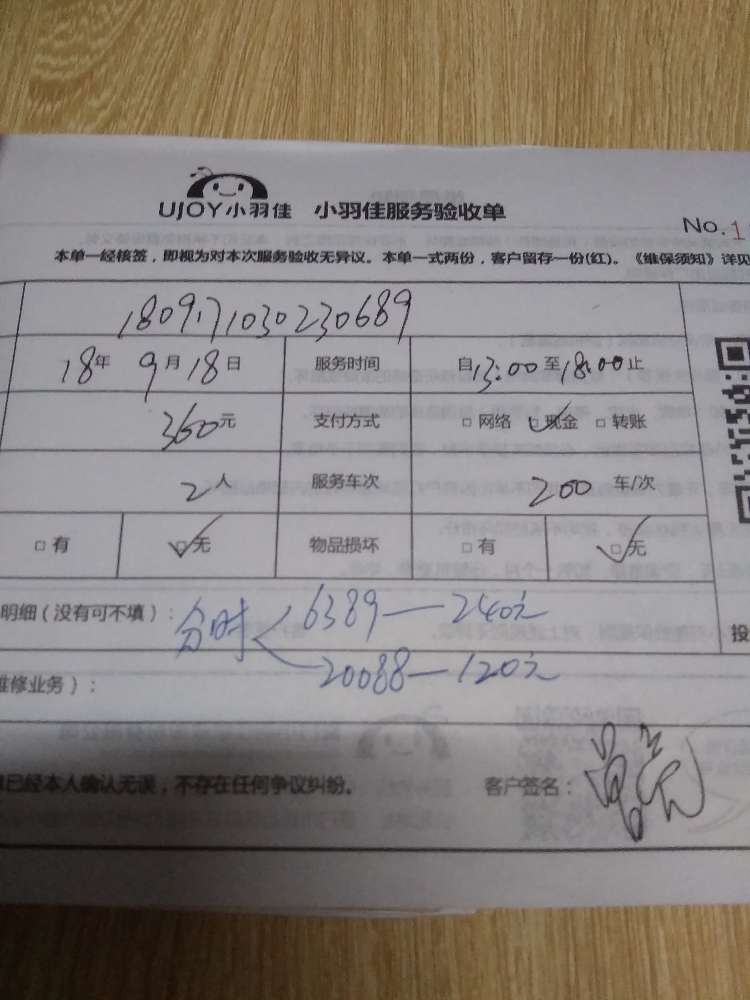 UJOY小羽佳 小羽佳服务验收单
No.1
本单一经核签，即视为对本次服务验收无异议。本单一式两份，客户留存一份(红)。《维保须知》详见
1809171030230689
18年 9月18日 服务时间 自13:00至18:00止
360元 支付方式 □网络 ☑现金 □转账
2人 服务车次 200车/次
□有 ☑无 物品损坏 □有 ☑无
明细（没有可不填）：
分时 6389—240元
20088—120元
投
维修业务）：
已经本人确认无误，不存在任何争议纠纷。 客户签名：